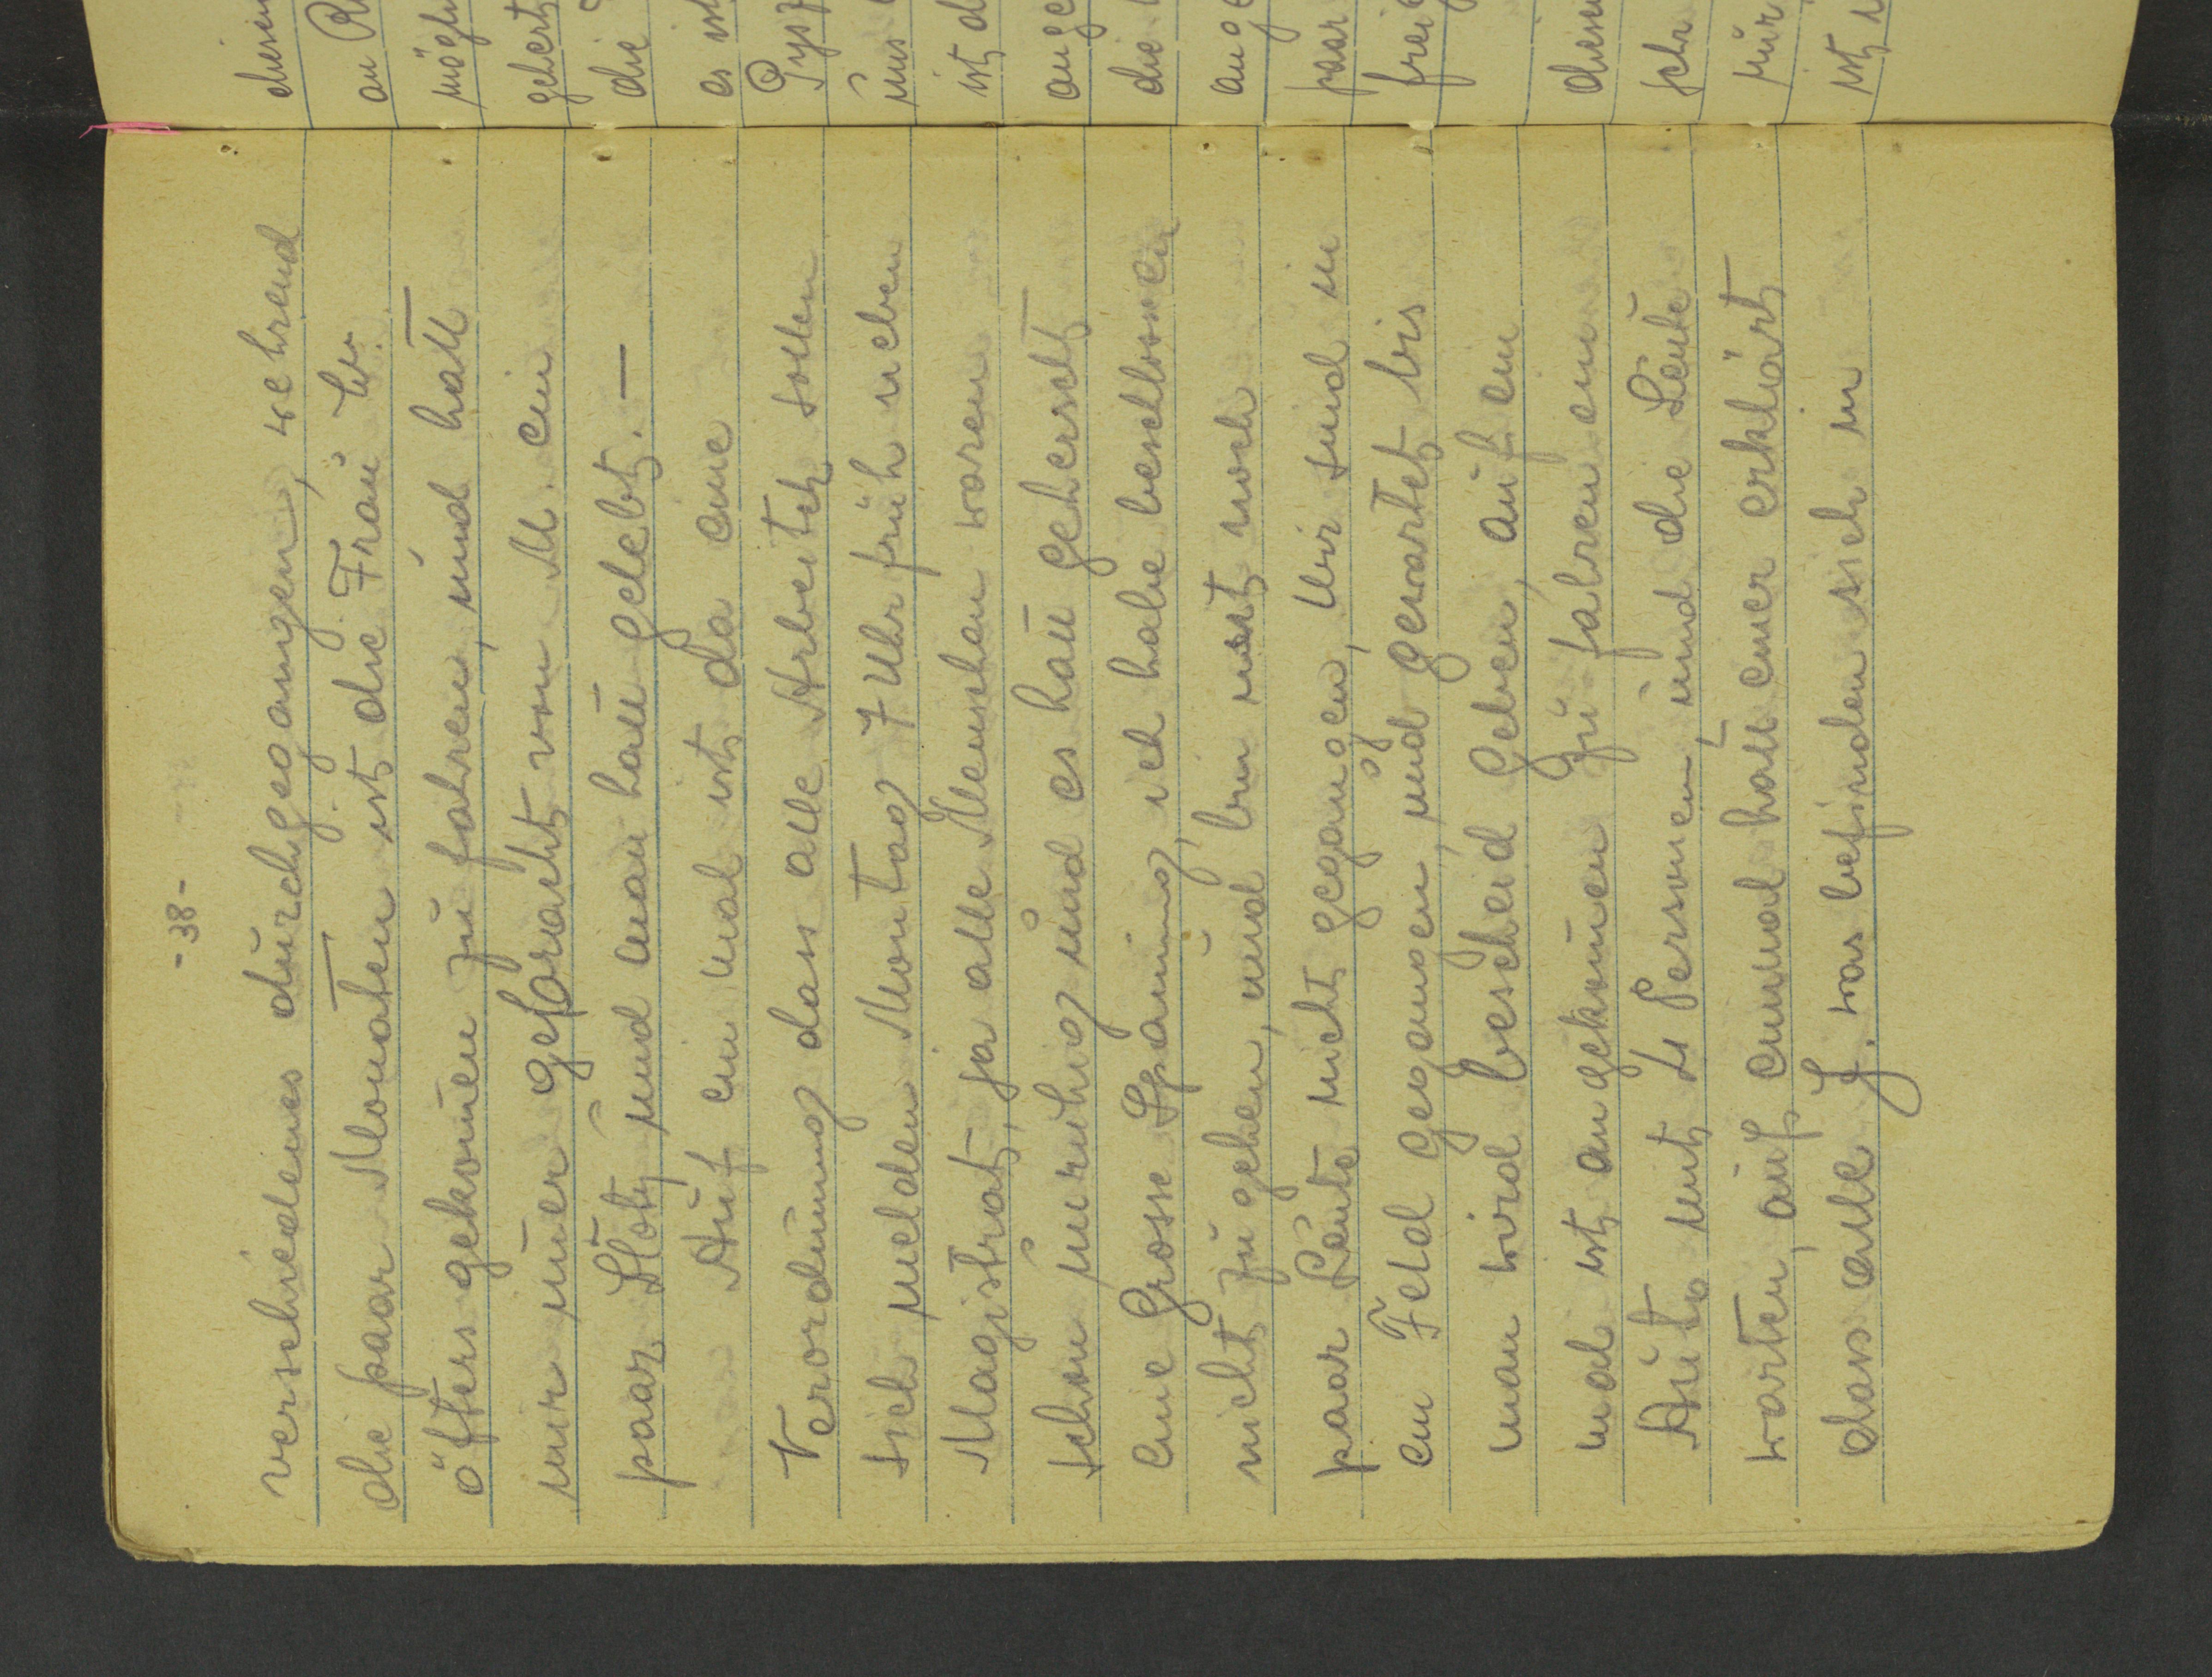 -38-
verschiedenes durchgegangen, wehrend
die paar Monaten ist die Frau W.
öfters gekom̄en zu fahren, und hat̄
mir im̄er gebracht von M. ein
paar Zloty und man hat̄ gelebt. —
Auf ein mal ist da eine
Verordnung dass alle Arbeiter sollen
sich melden Montag 7 Uhr früh neben
Magistrat, ja alle Menschen waren
schon unruhig und es hat̄ geherscht
eine Grosse Spanung, ich habe beschlossen
nicht zu gehen, und bin mit noch
paar Leute nicht gegangen, Wir sind in
ein Feld gegangen, und gewartet bis
man wird bescheid geben, auf ein
mal ist an gekom̄en zu fahren ein
Auto mit Personen, und die Leute
warten, auf einmal hat̄ einer erklärt
dass alle J. was befinden sich in
dies
an
mögl
gehert
die
es ist
uns
ist d
ange
die
ang
paar
frei
diese
sehr
nur
ist